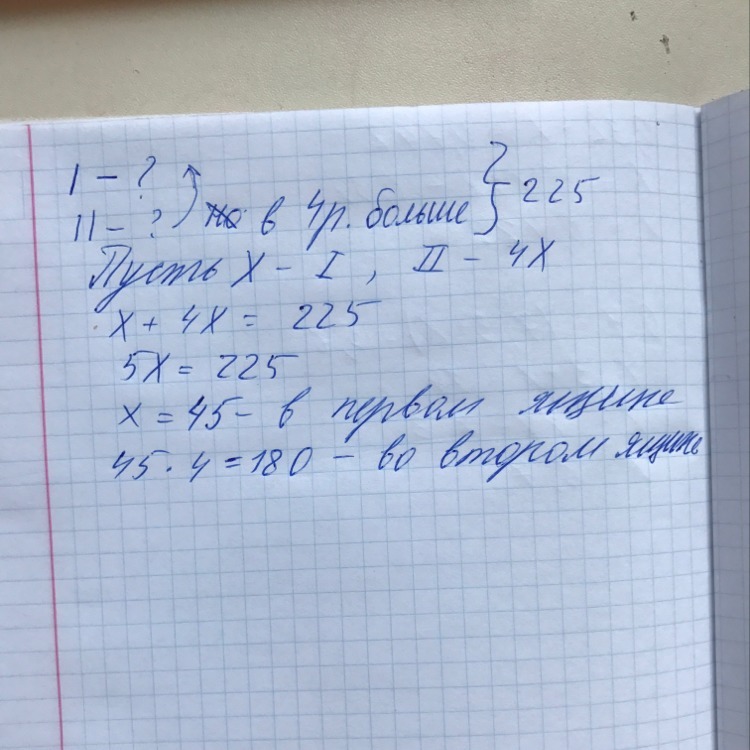 I – ?
II – ? в 4р. больше } 225
Пусть X – I, II – 4X
X + 4X = 225
5X = 225
X = 45 – в первом ящике
45 · 4 = 180 – во втором ящике